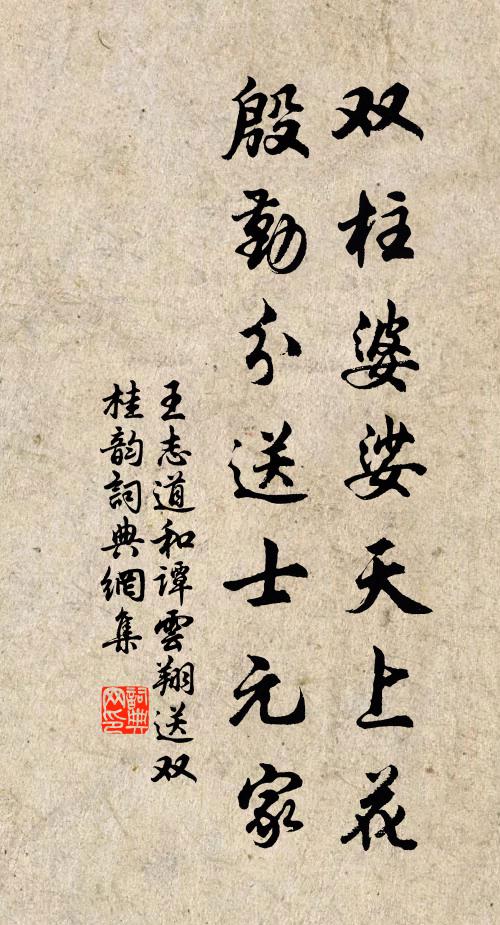 双柱婆娑天上花
殷勤分送士元家
王志道和谭雲翔送双
桂韵詞典網集
詞典
网印